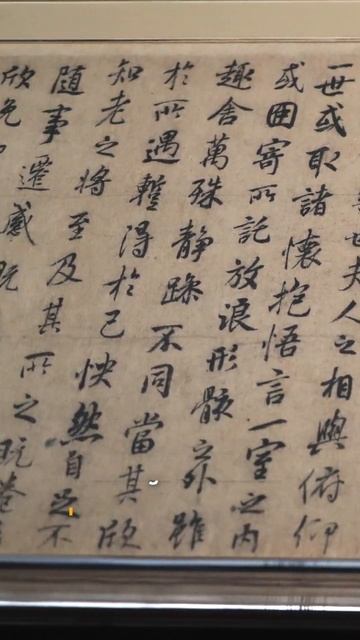 夫人之相與俯仰
一世或取諸懷抱悟言一室之內
或因寄所託放浪形骸之外雖
趣舍萬殊靜躁不同當其欣
於所遇蹔得於己怏然自足不
知老之將至及其所之既惓
隨事遷感
欣